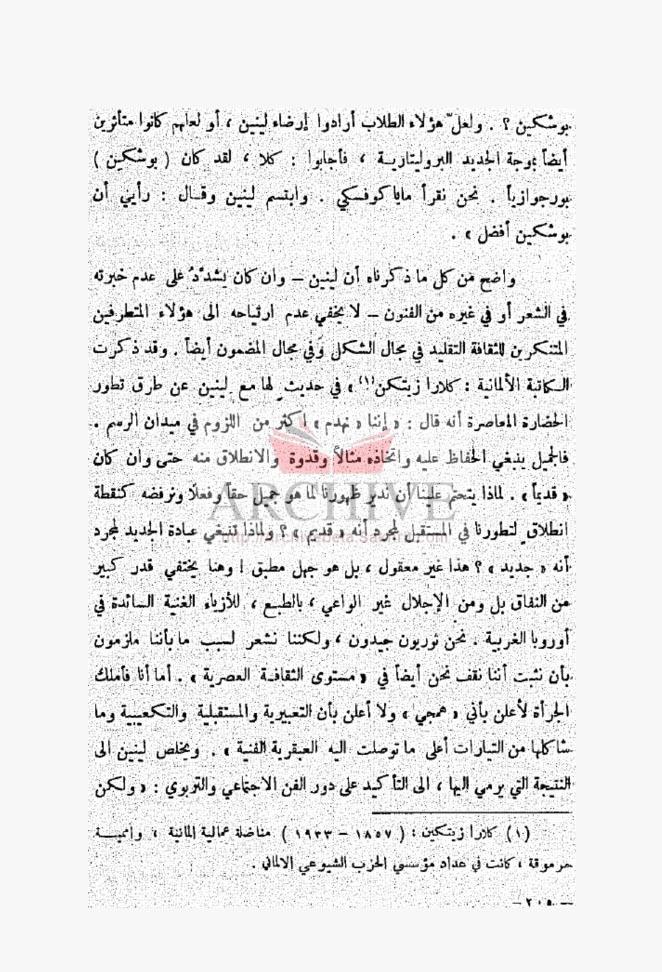 بوشكين ؟ . ولعلّ هؤلاء الطلاب أرادوا إرضاء لينين ، أو لعلهم كانوا متأثرين
أيضاً بموجة الجديد البروليتارية ، فأجابوا : كلا ، لقد كان ( بوشكين )
بورجوازياً . نحن نقرأ ماياكوفسكي . وابتسم لينين وقال : رأيي أن
بوشكين أفضل » .
واضح من كل ما ذكرناه أن لينين – وان كان يشدّد على عدم خبرته
في الشعر أو في غيره من الفنون – لا يخفي عدم ارتياحه الى هؤلاء المتطرفين
المتنكرين للثقافة التقليد في مجال الشكل وفي مجال المضمون أيضاً . وقد ذكرت
الكاتبة الألمانية : كلارا زيتكن(١) » في حديث لها مع لينين عن طرق تطور
الحضارة المعاصرة أنه قال : « إننا « نهدم » اكثر من اللزوم في ميدان الرسم .
فالجميل ينبغي الحفاظ عليه واتخاذه مثالاً وقدوة والانطلاق منه حتى وان كان
« قديماً » . لماذا يتحتم علينا أن ندير ظهورنا لما هو جميل حقاً وفعلاً ونرفضه كنقطة
انطلاق لتطورنا في المستقبل لمجرد أنه « قديم » ؟ ولماذا تنبغي عبادة الجديد لمجرد
أنه « جديد » ؟ هذا غير معقول ، بل هو جهل مطبق ! وهنا يختفي قدر كبير
من النفاق بل ومن الإجلال غير الواعي ، بالطبع ، للأزياء الفنية السائدة في
أوروبا الغربية . نحن ثوريون جيدون ، ولكننا نشعر لسبب ما بأننا ملزمون
بأن نثبت أننا نقف نحن أيضاً في « مستوى الثقافة العصرية » . أما أنا فأملك
الجرأة لأعلن بأني « همجي » ولا أعلن بأن التعبيرية والمستقبلية والتكعيبية وما
شاكلها من التيارات أعلى ما توصلت اليه العبقرية الفنية » . ويخلص لينين الى
النتيجة التي يرمي اليها ، الى التأكيد على دور الفن الاجتماعي والتربوي : « ولكن
(١) كلارا زيتكين : ( ١٨٥٧ – ١٩٣٣ ) مناضلة عمالية المانية ، واممية
مرموقة ، كانت في عداد مؤسسي الحزب الشيوعي الالماني .
– ٢٠٥ –
ARCHIVE